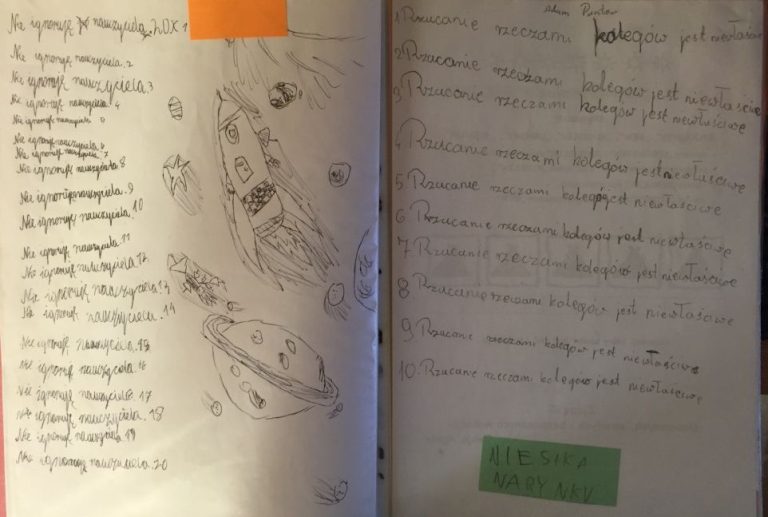 Nie ignoruję nauczyciela. 20x 1
Nie ignoruję nauczyciela. 2
Nie ignoruję nauczyciela. 3
Nie ignoruję nauczyciela. 4
Nie ignoruję nauczyciela 5
Nie ignoruję nauczyciela 6
Nie ignoruję nauczyciela. 7
Nie ignoruję nauczyciela. 8
Nie ignoruję nauczyciela. 9
Nie ignoruję nauczyciela. 10
Nie ignoruję nauczyciela 11
Nie ignoruję nauczyciela. 12
Nie ignoruję nauczyciela. 13
Nie ignoruję nauczyciela. 14
Nie ignoruję nauczyciela. 15
Nie ignoruję nauczyciela 16
Nie ignoruję nauczyciela. 17
Nie ignoruję nauczyciela. 18
Nie ignoruję nauczyciela 19
Nie ignoruję nauczyciela. 20
Adam
1. Rzucanie rzeczami kolegów jest niewłaściwe
2. Rzucanie rzeczami kolegów jest niewłaściwe
3. Rzucanie rzeczami kolegów jest niewłaściwe
4. Rzucanie rzeczami kolegów jest niewłaściwe
5. Rzucanie rzeczami kolegów jest niewłaściwe
6. Rzucanie rzeczami kolegów jest niewłaściwe
7. Rzucanie rzeczami kolegów jest niewłaściwe
8. Rzucanie rzeczami kolegów jest niewłaściwe
9. Rzucanie rzeczami kolegów jest niewłaściwe
10. Rzucanie rzeczami kolegów jest niewłaściwe
NIE SIKA
NA RYNKU